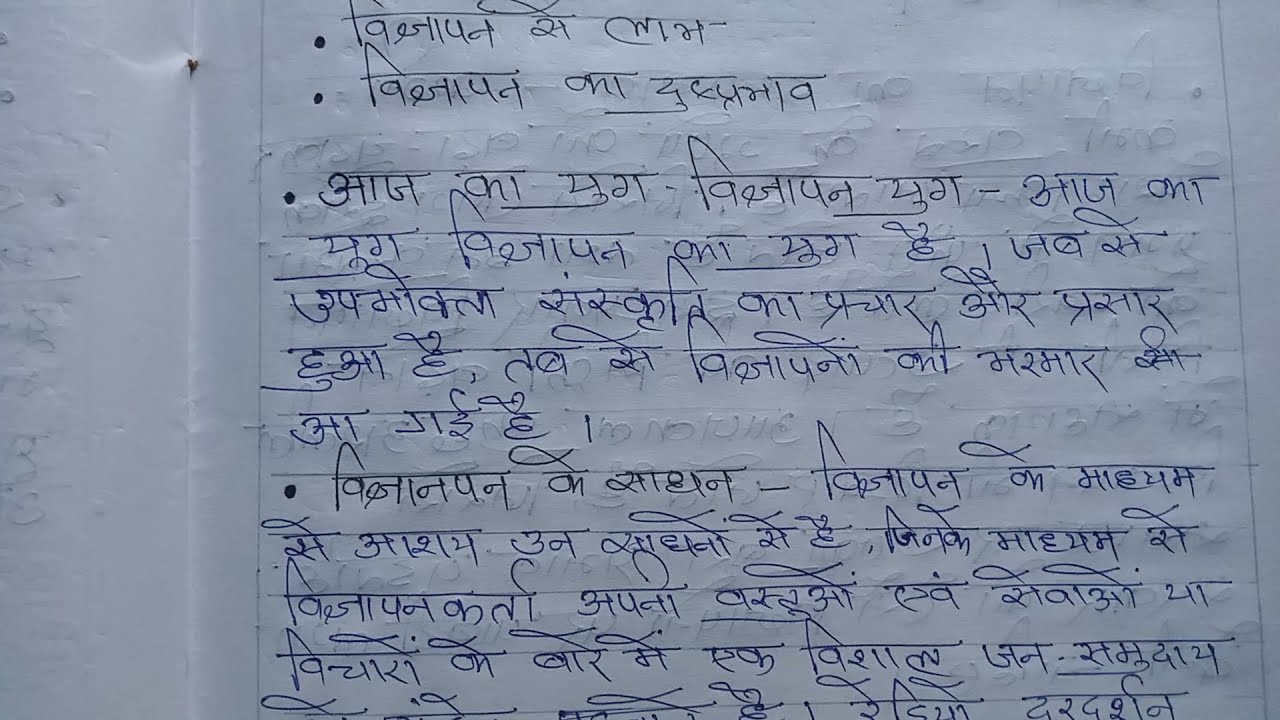 • विज्ञापन से लाभ-
• विज्ञापन का दुष्प्रभाव
• आज का युग - विज्ञापन युग - आज का
युग विज्ञापन का युग है । जब से
उपभोक्ता संस्कृति का प्रचार और प्रसार
हुआ है, तब से विज्ञापनों की भरमार सी
आ गई है ।
• विज्ञानपन के साधन - विज्ञापन के माध्यम
से आशय उन साधनों से है, जिनके माध्यम से
विज्ञापनकर्ता अपनी वस्तुओं एवं सेवाओं या
विचारों के बारे में एक विशाल जन-समुदाय
है । रेडियो दूरदर्शन